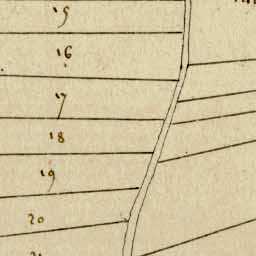 15
16
17
18
19
20